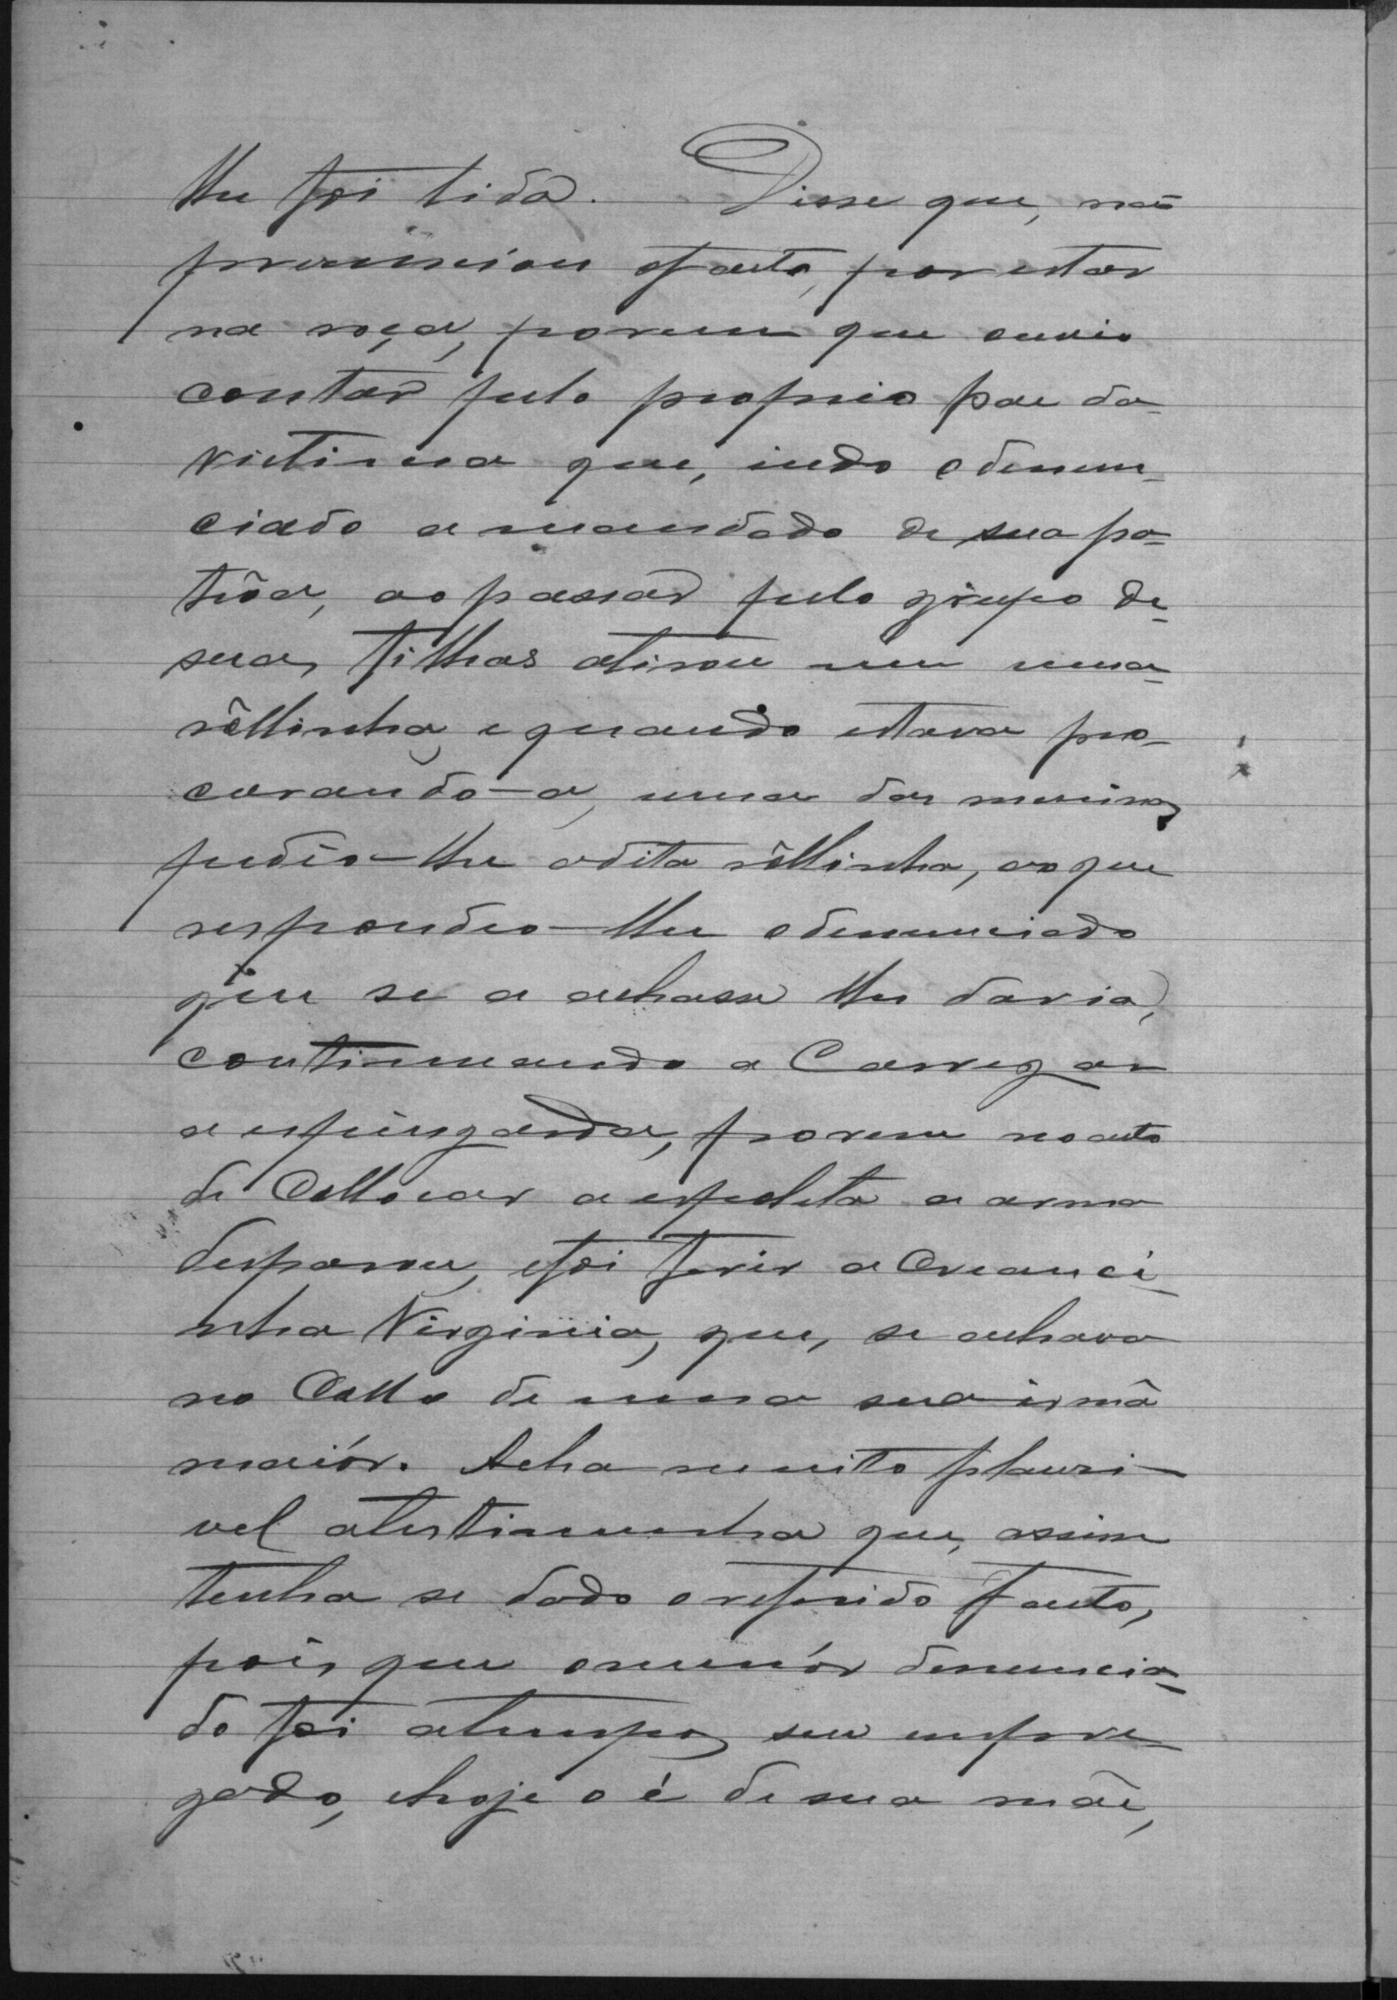 lhe foi lida. Disse que, não
presenciou o facto, por estar
na roça, porem que ouvio
contar pelo proprio pae da
victima que, indo o denun-
ciado a mandado de sua pa-
trôa, ao passar pelo grupo de
suas filhas atirou em uma
rôllinha, e quando estava pro-
curando-a, uma das meninas
pedio-lhe a dita rôllinha, ao que
respondeo-lhe o denunciado
que se a achasse lhe daria,
continuando a Carregar
a espingarda, porem no acto
de Collocar a espoleta a arma
disparou, e foi ferir a Creanci-
nha Virginia, que, se achava
no Collo de uma sua irmã
maiór. Acha muito plausi-
vel a testimunha que, assim
tenha se dado o referido facto,
pois que o menór denuncia-
do foi a tempos seu empre-
gado, e hoje o é de sua mãe,